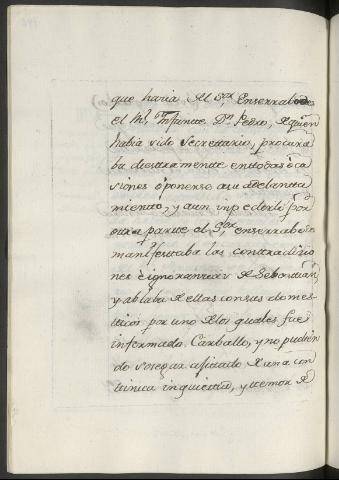 que haria el S.or Enserrabodes
el Ill.e Infante D.n Pedro, de quien
habia sido Secrettario, procura
ba diestramente en todas oca
siones oponerse a su adelanta
miento, y aun inpedirle por
otra parte el S.or enserrabo
manifestaba las contradicio
nes è ignorancias de Sebastian,
y ablaba de ellas con sus domes
ticos por uno de los quales fue
informado Carballo, y no pudien
do sosegar agitado de una con
tinua inquietud, y temor de